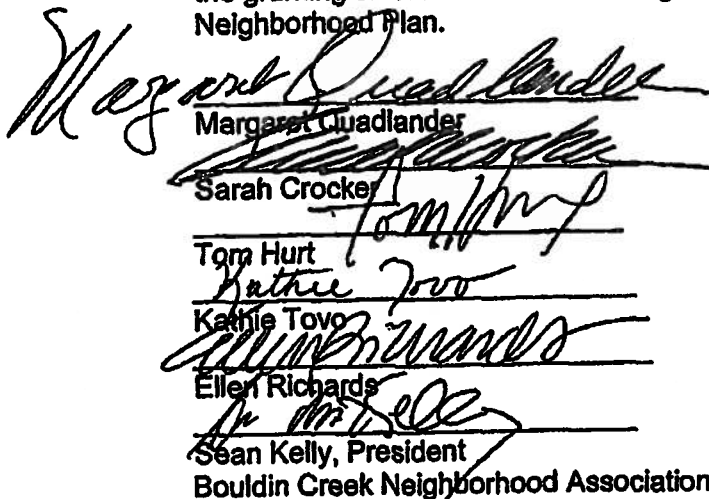 the granting
Neighborhood Plan.
Margaret Quadlander
Margaret Quadlander
Sarah Crocker
Sarah Crocker
Tom Hurt
Tom Hurt
Kathie Tovo
Kathie Tovo
Ellen Richards
Ellen Richards
Sean Kelly, President
Bouldin Creek Neighborhood Association